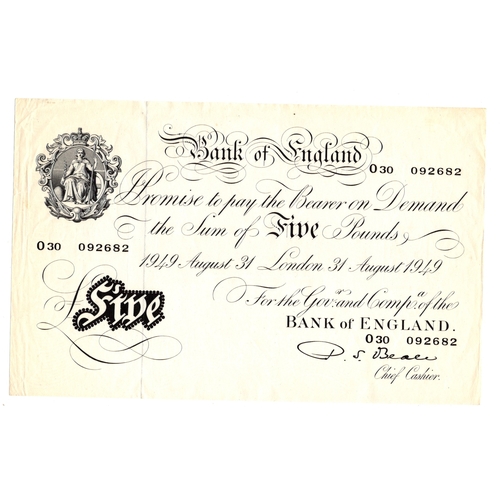 Bank of England
O30 092682
I Promise to pay the Bearer on Demand
the Sum of Five Pounds
O30 092682
1949 August 31 London 31 August 1949
£Five
For the Govr. and Compa. of the
BANK OF ENGLAND.
O30 092682
P. S. Beale
Chief Cashier.